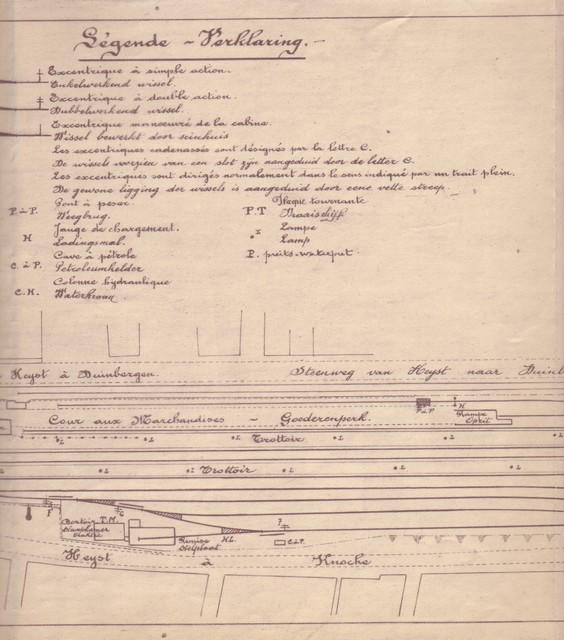 Légende - Verklaring.-
Excentrique à simple action.
Enkelwerkend wissel.
Excentrique à double action.
Dubbelwerkend wissel.
Excentrique manœuvré de la cabine.
Wissel bewerkt door seinhuis
Les excentriques cadenassés sont désignés par la lettre C.
De wissels voorzien van een slot zijn aangeduid door de letter C.
Les excentriques sont dirigés normalement dans le sens indiqué par un trait plein.
De gewone ligging der wissels is aangeduid door eene vette streep.
Pont à peser. Plaque tournante
P.à P. Weegbrug. P.T Draaischijf
Jauge de chargement. Lampe
H Ladingsmal. Lamp
Cave à pétrole P. puits-waterput.
C. à P. Petroleumkelder
Colonne hydraulique
C.H. Waterkraan.
Heyst à Duinbergen. Steenweg van Heyst naar Duinb
P.à P. H
Rampe
Oprit
Cour aux Marchandises - Goederenperk.
L L L Trottoir L L L
L L Trottoir L L L
F C
H.L. C.à P.
Remise
Heyst à Knocke